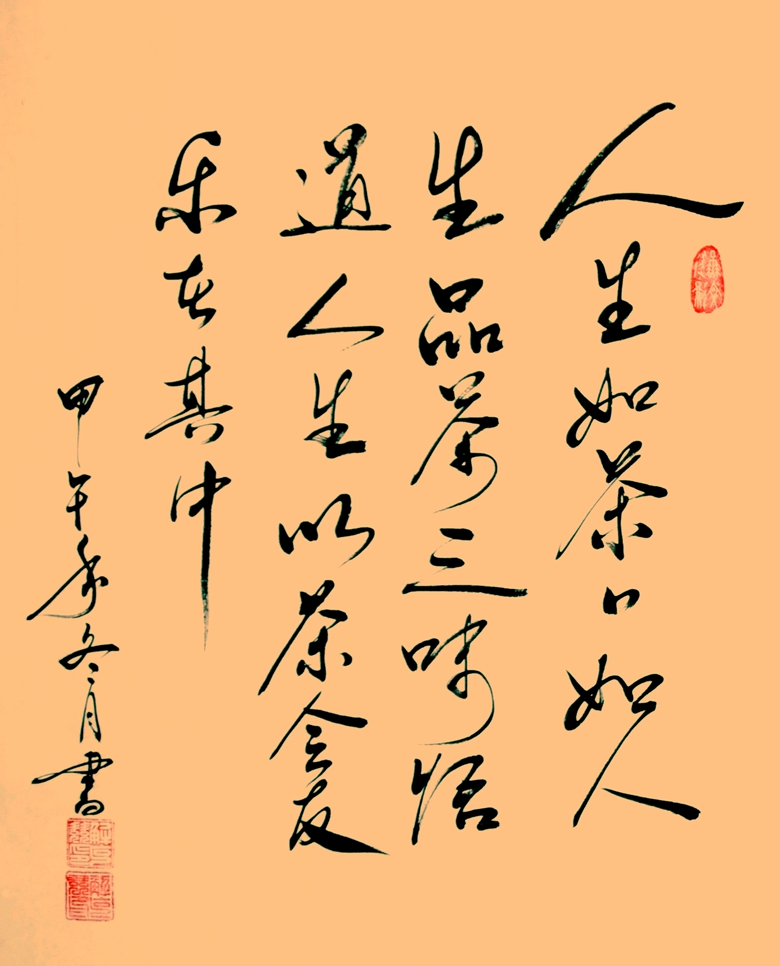 人生如茶々如人
生品茶三味悟
道人生以茶会友
乐在其中
甲午年冬月書